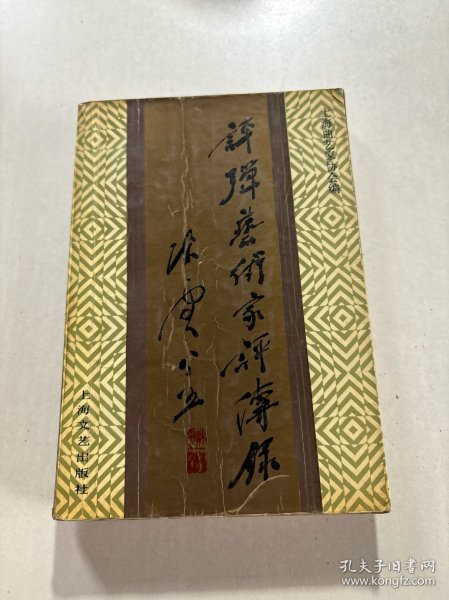 上海曲艺家协会编
评弹艺术家評傳錄
上海文艺出版社
孔夫子旧书网
www.kongfz.com